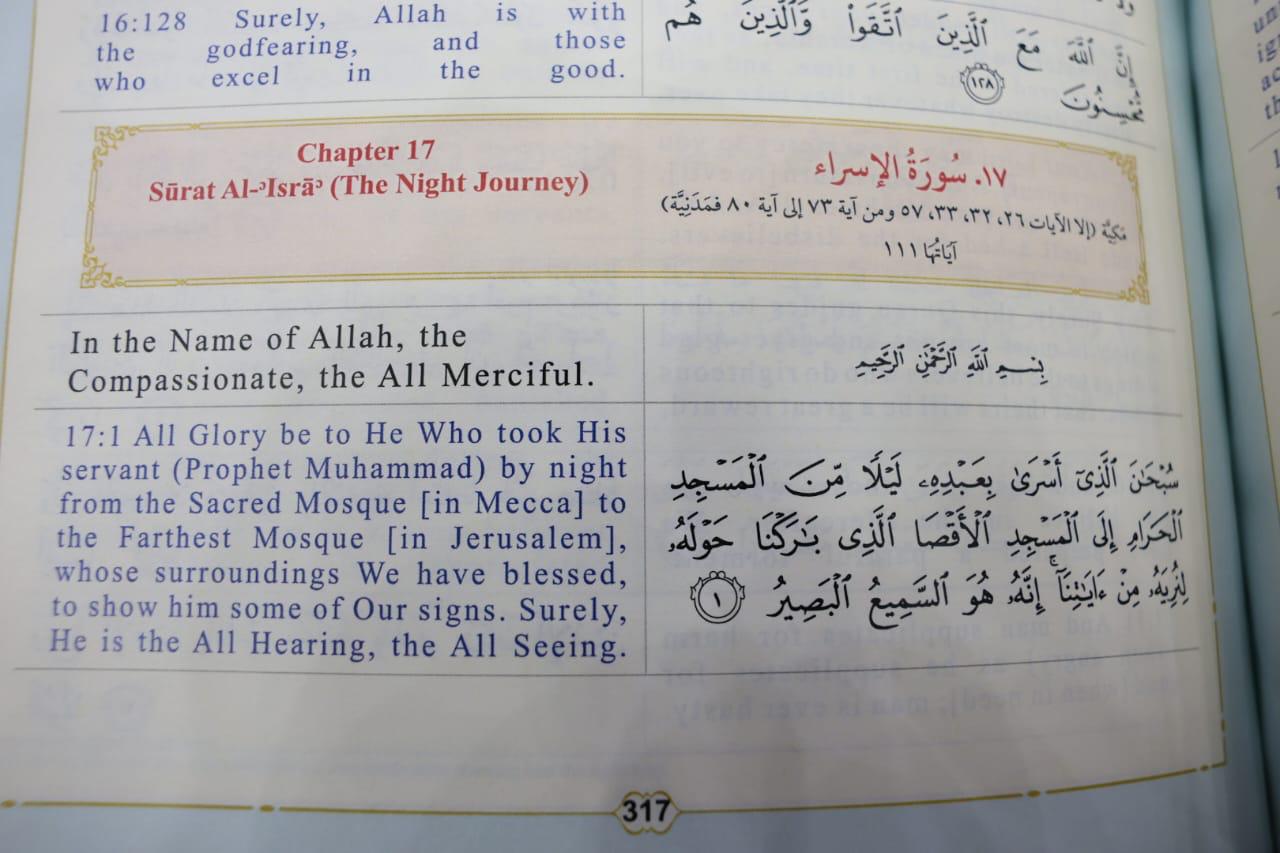 16:128 Surely, Allah is with
the godfearing, and those
who excel in the good.
إِنَّ ٱللَّهَ مَعَ ٱلَّذِينَ ٱتَّقَوا۟ وَّٱلَّذِينَ هُم
مُّحْسِنُونَ ١٢٨
Chapter 17
Sūrat Al-ʾIsrāʾ (The Night Journey)
١٧. سُورَةُ الإسراء
مَكِّيَّة (إلا الآيات ٢٦، ٣٢، ٣٣، ٥٧ ومن آية ٧٣ إلى آية ٨٠ فمَدَنِيَّة)
آيَاتُهَا ١١١
In the Name of Allah, the
Compassionate, the All Merciful.
بِسْمِ ٱللَّهِ ٱلرَّحْمَٰنِ ٱلرَّحِيمِ
17:1 All Glory be to He Who took His
servant (Prophet Muhammad) by night
from the Sacred Mosque [in Mecca] to
the Farthest Mosque [in Jerusalem],
whose surroundings We have blessed,
to show him some of Our signs. Surely,
He is the All Hearing, the All Seeing.
سُبْحَٰنَ ٱلَّذِىٓ أَسْرَىٰ بِعَبْدِهِۦ لَيْلًا مِّنَ ٱلْمَسْجِدِ
ٱلْحَرَامِ إِلَى ٱلْمَسْجِدِ ٱلْأَقْصَا ٱلَّذِى بَٰرَكْنَا حَوْلَهُۥ
لِنُرِيَهُۥ مِنْ ءَايَٰتِنَآ ۚ إِنَّهُۥ هُوَ ٱلسَّمِيعُ ٱلْبَصِيرُ ١
317